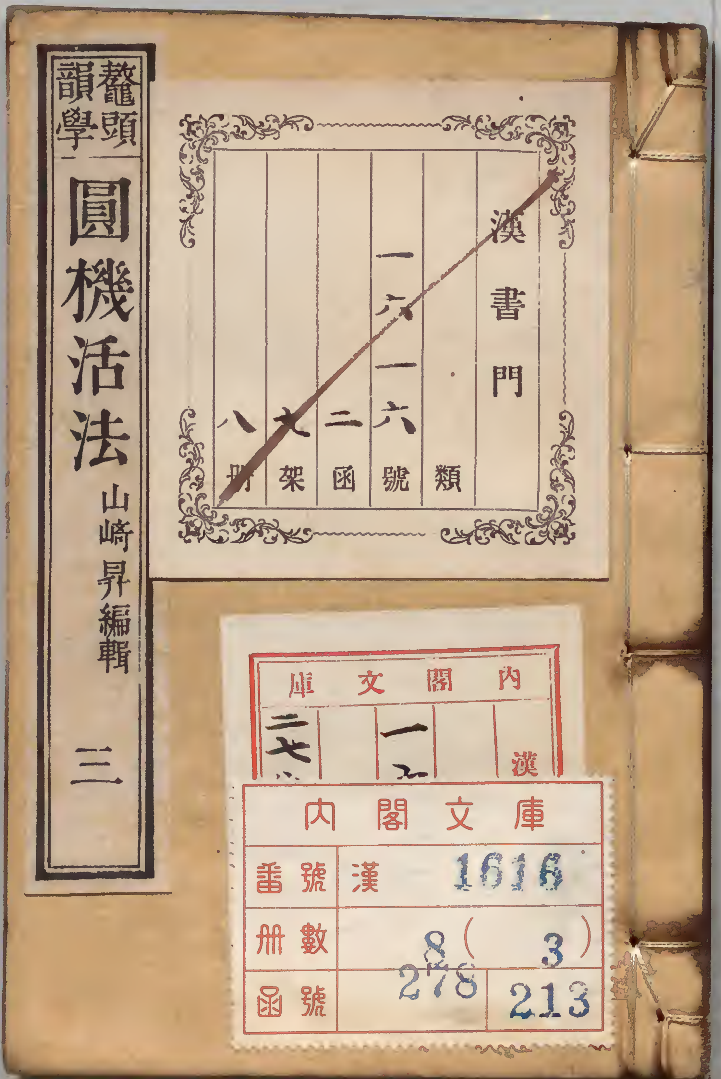 鼇頭
韻學
圓機活法
山﨑昇編輯
三
漢書門
類
一六一六號
二函
七架
八冊
內閣文庫
漢
一
二七
內閣文庫
番號 漢 1616
冊數 8(3)
函號 278 213